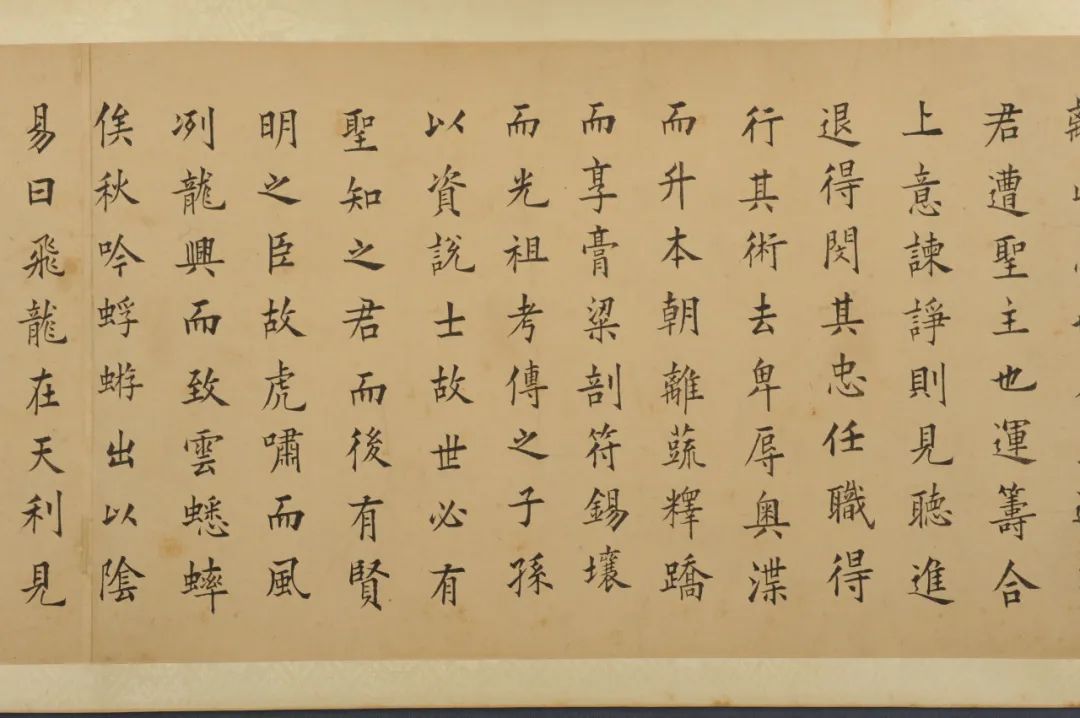 君遭聖主也運籌合
上意諫諍則見聽進
退得関其忠任職得
行其術去卑辱奧渫
而升本朝離蔬釋蹻
而享膏粱剖符錫壤
而光祖考傳之子孫
以資說士故世必有
聖知之君而後有賢
明之臣故虎嘯而風
冽龍興而致雲蟋蟀
俟秋吟蜉蝣出以陰
易曰飛龍在天利見